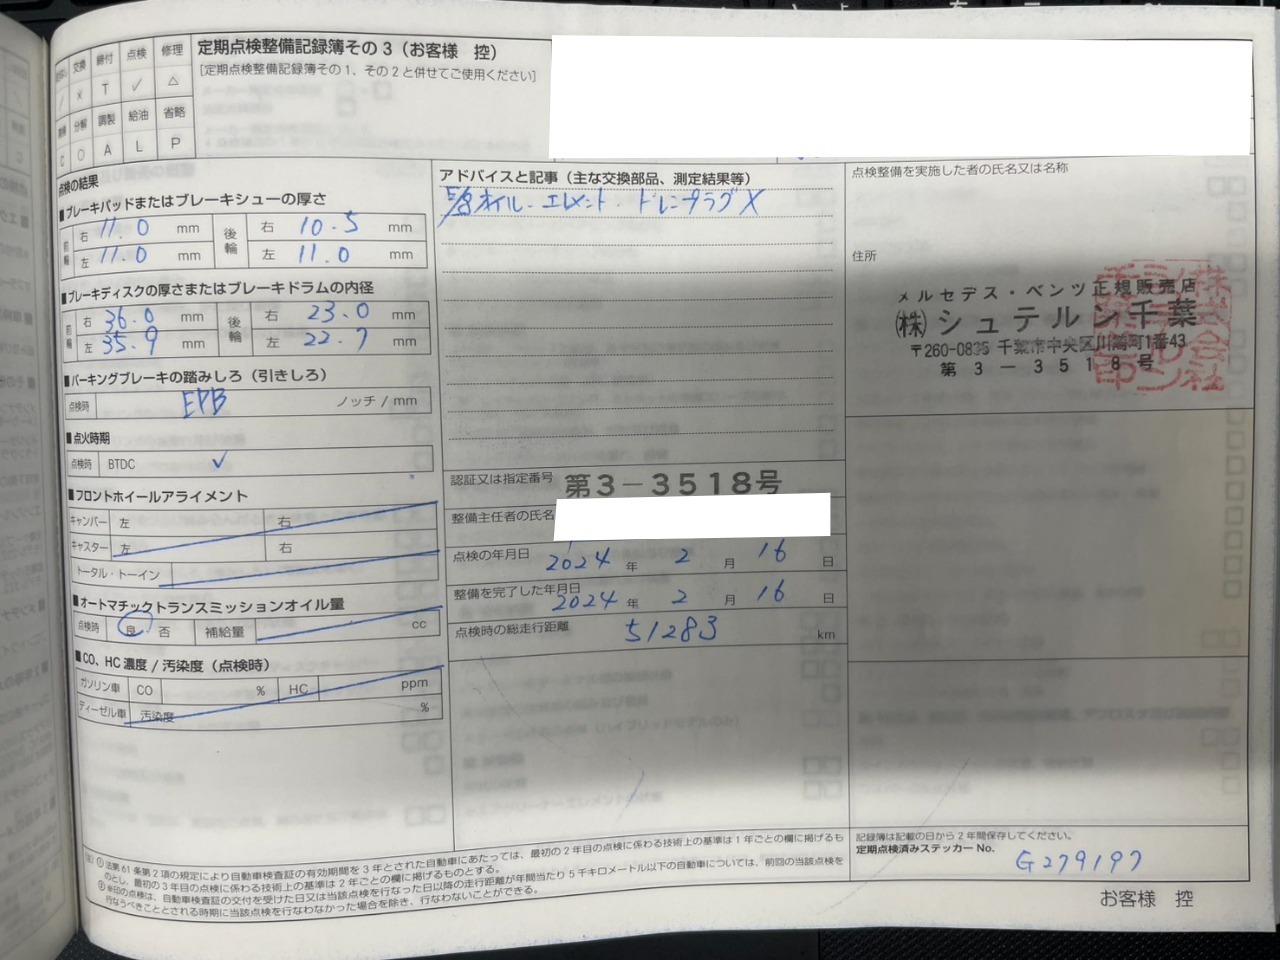 定期点検整備記録簿その3(お客様 控)
[定期点検整備記録簿その1、その2と併せてご使用ください]
交換 締付 点検 修理
× T ✓ △
分解 調製 給油 省略
C ○ A L P
点検の結果
■ブレーキパッドまたはブレーキシューの厚さ
前輪 右 11.0 mm 後輪 右 10.5 mm
左 11.0 mm 左 11.0 mm
■ブレーキディスクの厚さまたはブレーキドラムの内径
前輪 右 36.0 mm 後輪 右 23.0 mm
左 35.9 mm 左 22.7 mm
■パーキングブレーキの踏みしろ(引きしろ)
点検時 EPB ノッチ / mm
■点火時期
点検時 BTDC ✓
■フロントホイールアライメント
キャンバー 左 右
キャスター 左 右
トータル・トーイン
■オートマチックトランスミッションオイル量
点検時 良 否 補給量 cc
■CO、HC 濃度 / 汚染度(点検時)
ガソリン車 CO % HC ppm
ディーゼル車 汚染度 %
アドバイスと記事(主な交換部品、測定結果等)
オイル・エレメント・ドレンプラグ×
認証又は指定番号 第3-3518号
整備主任者の氏名
点検の年月日 2024 年 2 月 16 日
整備を完了した年月日 2024 年 2 月 16 日
点検時の総走行距離 51283 km
点検整備を実施した者の氏名又は名称
住所
メルセデス・ベンツ正規販売店
(株)シュテルン千葉
〒260-0835 千葉市中央区川崎町1番43
第3-3518号
(注)① 法第61条第2項の規定により自動車検査証の有効期間を3年とされた自動車にあたっては、最初の2年目の点検に係わる技術上の基準は1年ごとの欄に掲げるものとし、最初の3年目の点検に係わる技術上の基準は2年ごとの欄に掲げるものとする。
② ※印の点検は、自動車検査証の交付を受けた日又は当該点検を行なった日以降の走行距離が年間当たり5千キロメートル以下の自動車については、前回の当該点検を行なうべきこととされる時期に当該点検を行なわなかった場合を除き、行なわないことができる。
記録簿は記載の日から2年間保存してください。
定期点検済みステッカー No.
G279197
お客様 控